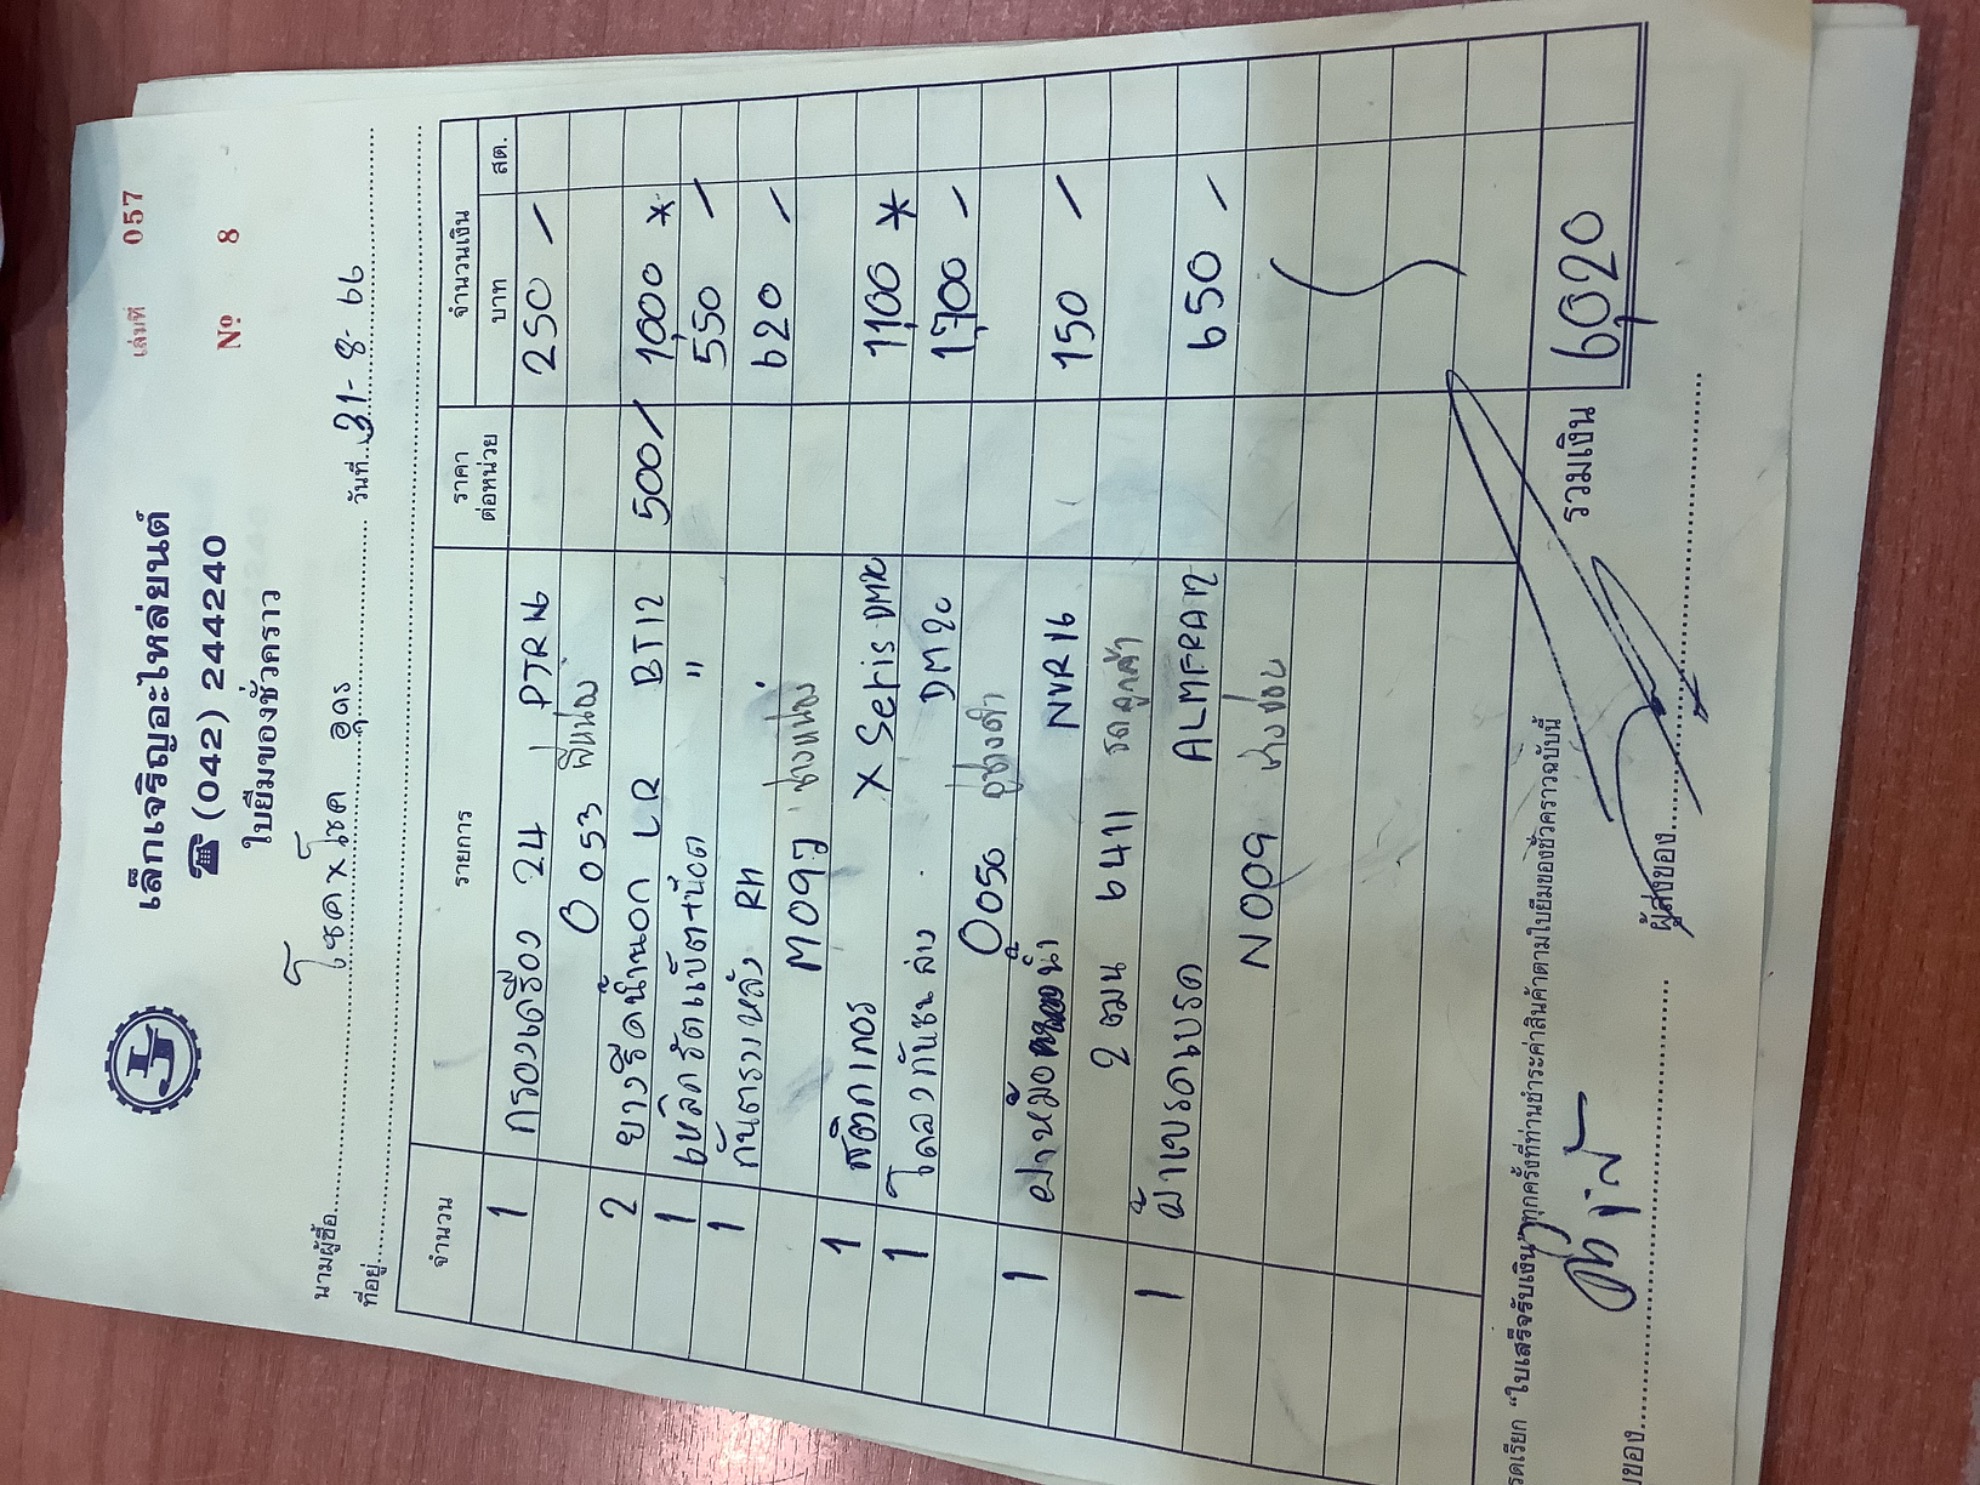 เล่มที่ 057
เล็กเจริญอะไหล่ยนต์
☎ (042) 244240
№ 8
ใบยืมของชั่วคราว
นามผู้ซื้อ โชค x โชค อุดร วันที่ 31-8-66
ที่อยู่
จำนวน รายการ ราคาต่อหน่วย จำนวนเงิน
บาท สต.
1 กรองเครื่อง 24 250 -
0053 พี่หน่อง
2 ยางรีดน้ำนอก LR BT12 500/ 1000 *
1 เหล็กรัดแบ็ต+น๊อต " 550 -
1 กันตรวงหลัง RH 620 -
ช่างหน่อง
1 สติกเกอร X Seris DMK 1,100 *
1 โคลงกันชนล่าง 1,700 -
0056 อู่ช่างดำ
1 ฝาหม้อน้ำ NVR16 150 -
2 ฒน 6411 รถลูกค้า
1 ผ้าเบรคเบรค 650 -
N009
รวมเงิน 6,020
รดเรียก "ใบเสร็จรับเงิน" ทุกครั้งที่ท่านชำระค่าสินค้าตามใบยืมของชั่วคราวฉบับนี้
ผู้ส่งของ